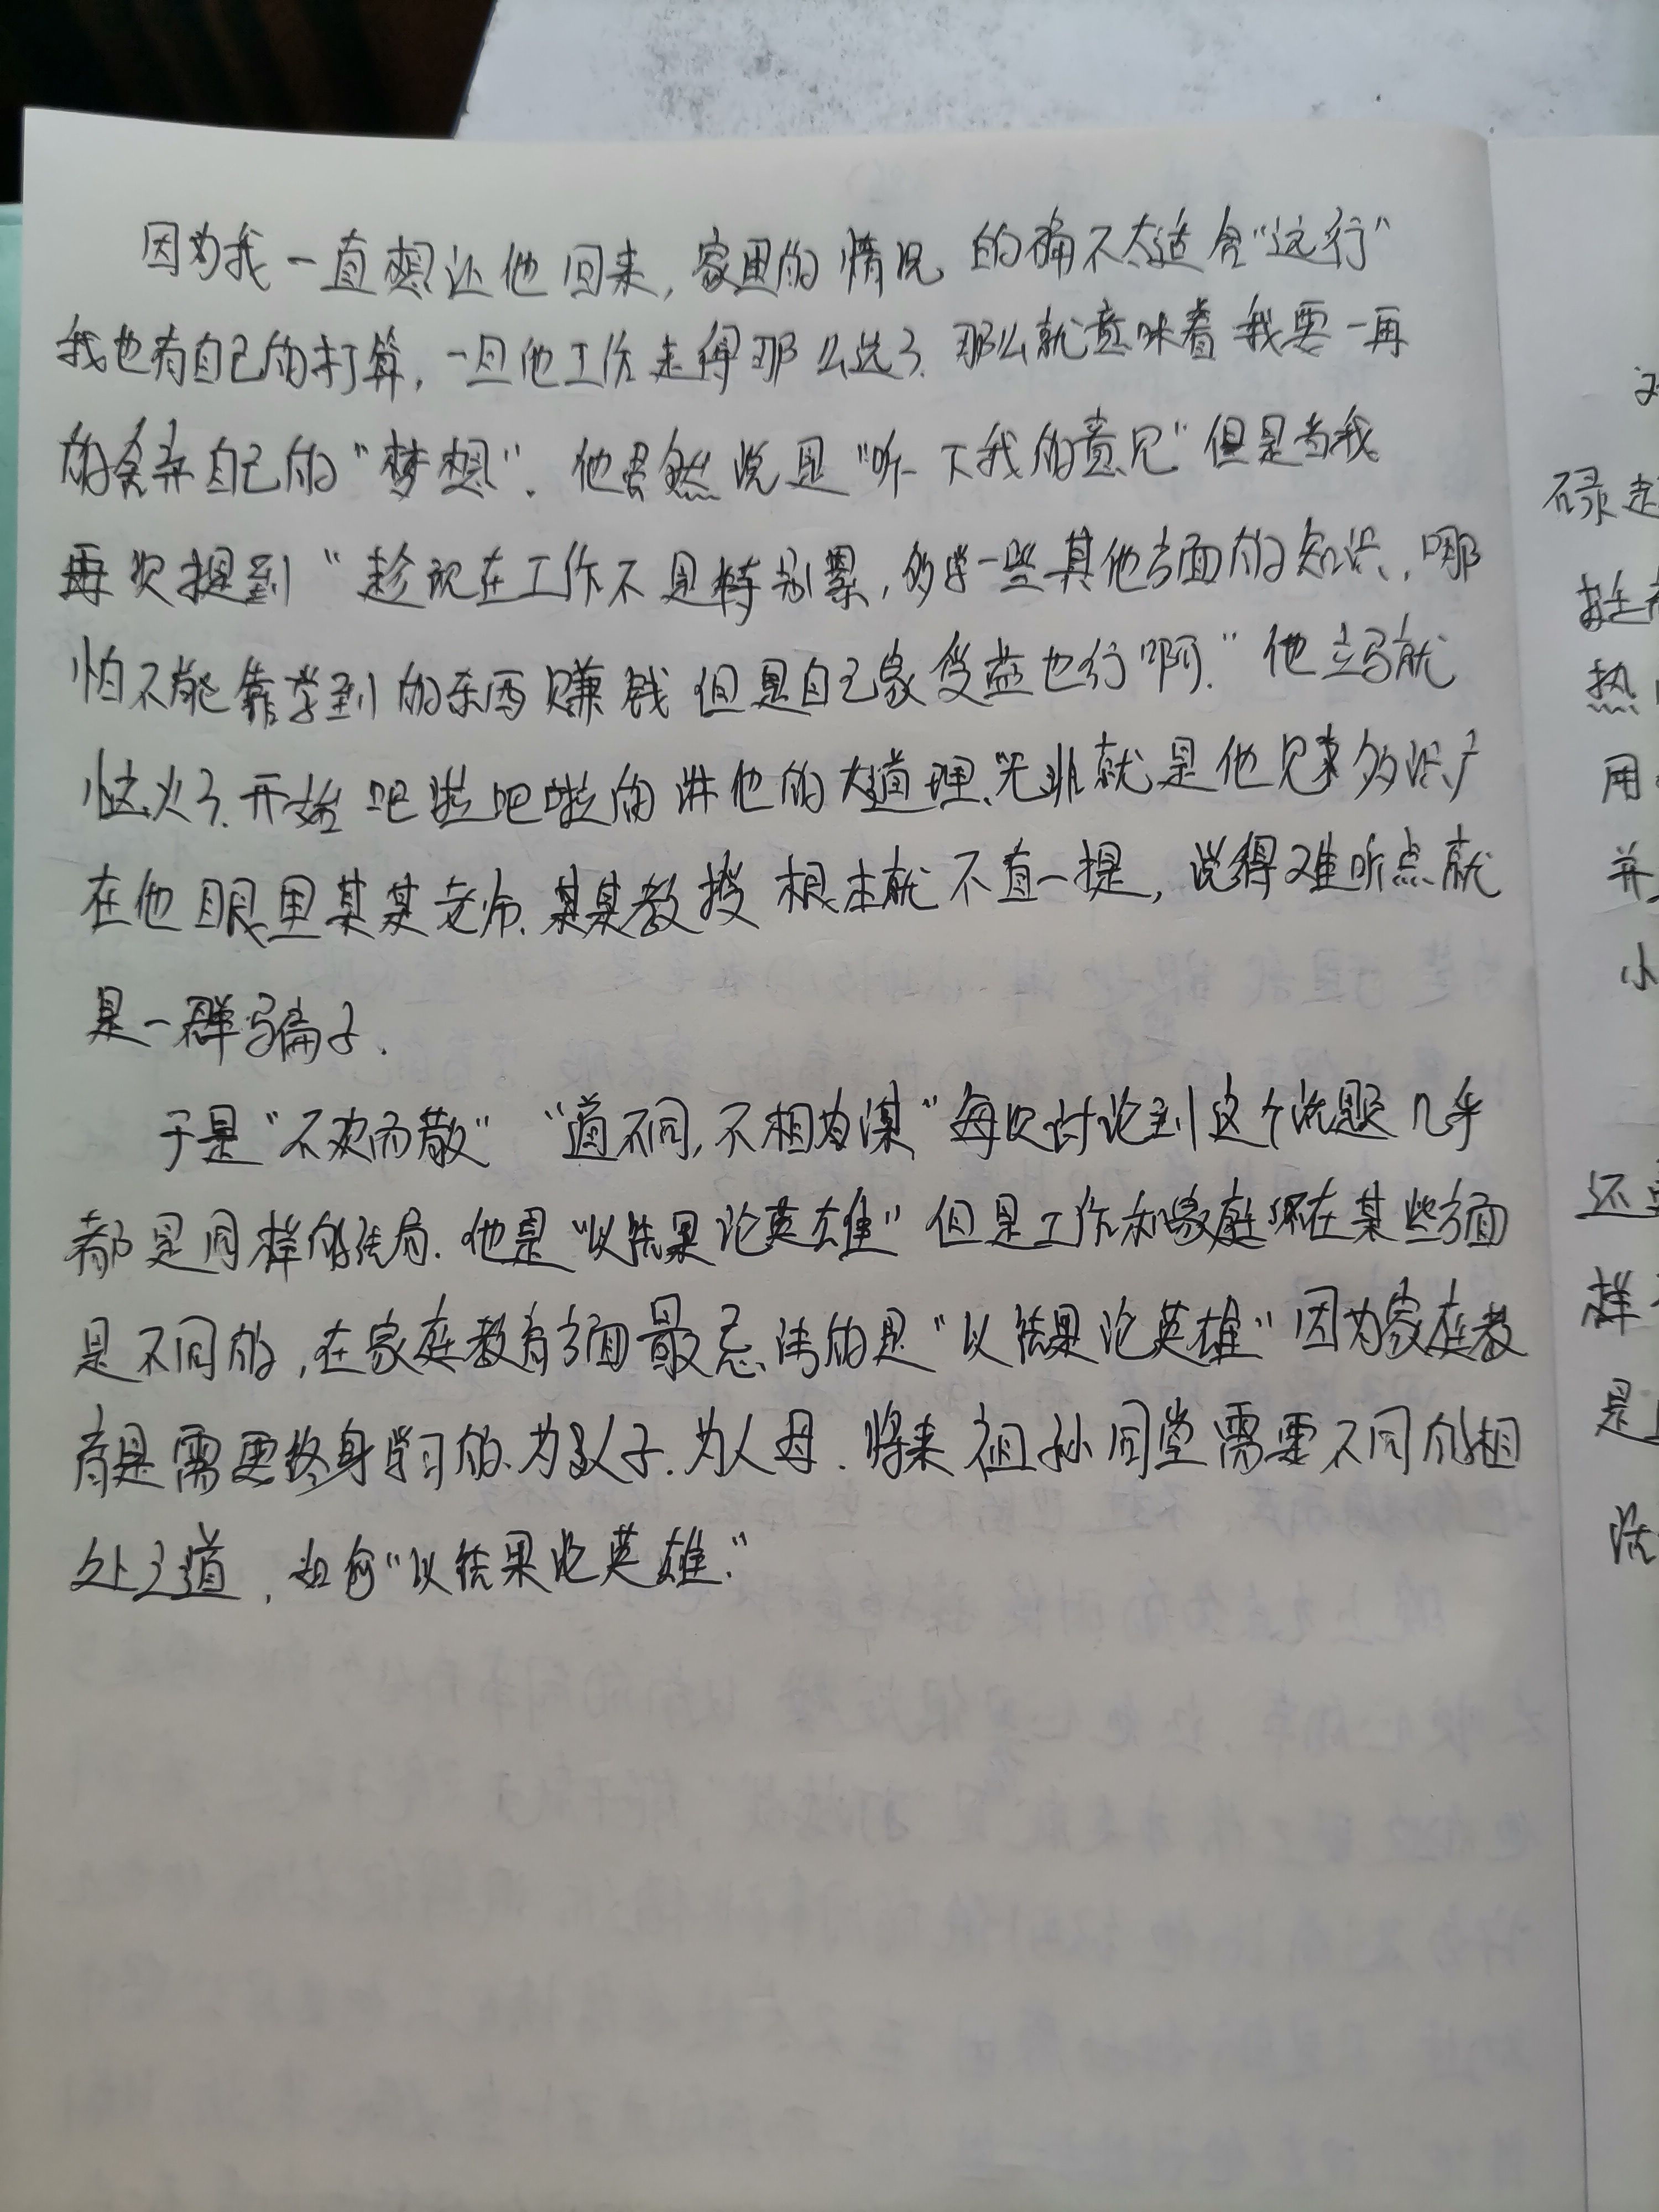 因为我一直想让他回来，家里的情况的确不太适合“远行”
我也有自己的打算，一旦他工作走得那么远了.那么就意味着我要一再
的舍弃自己的“梦想”.他虽然说是“听一下我的意见”但是当我
再次提到“趁现在工作不是特别累，多学一些其他方面的知识，哪
怕不能靠学到的东西赚钱但是自己家受益也行啊.”他立马就
恼火了.开始吧啦吧啦的讲他的大道理、无非就是他见多识广
在他眼里某某老师.某某教授根本就不值一提，说得难听点就
是一群骗子.
于是“不欢而散”“道不同，不相为谋”每次讨论到这个话题几乎
都是同样的结局.他是“以结果论英雄”但是工作和家庭在某些方面
是不同的，在家庭教育方面最忌讳的是“以结果论英雄”因为家庭教
育是需要终身学习的.为人子.为人母.将来祖孙同堂需要不同的相
处之道，如何“以结果论英雄.”
碌
热
用
并
小
还
样
是